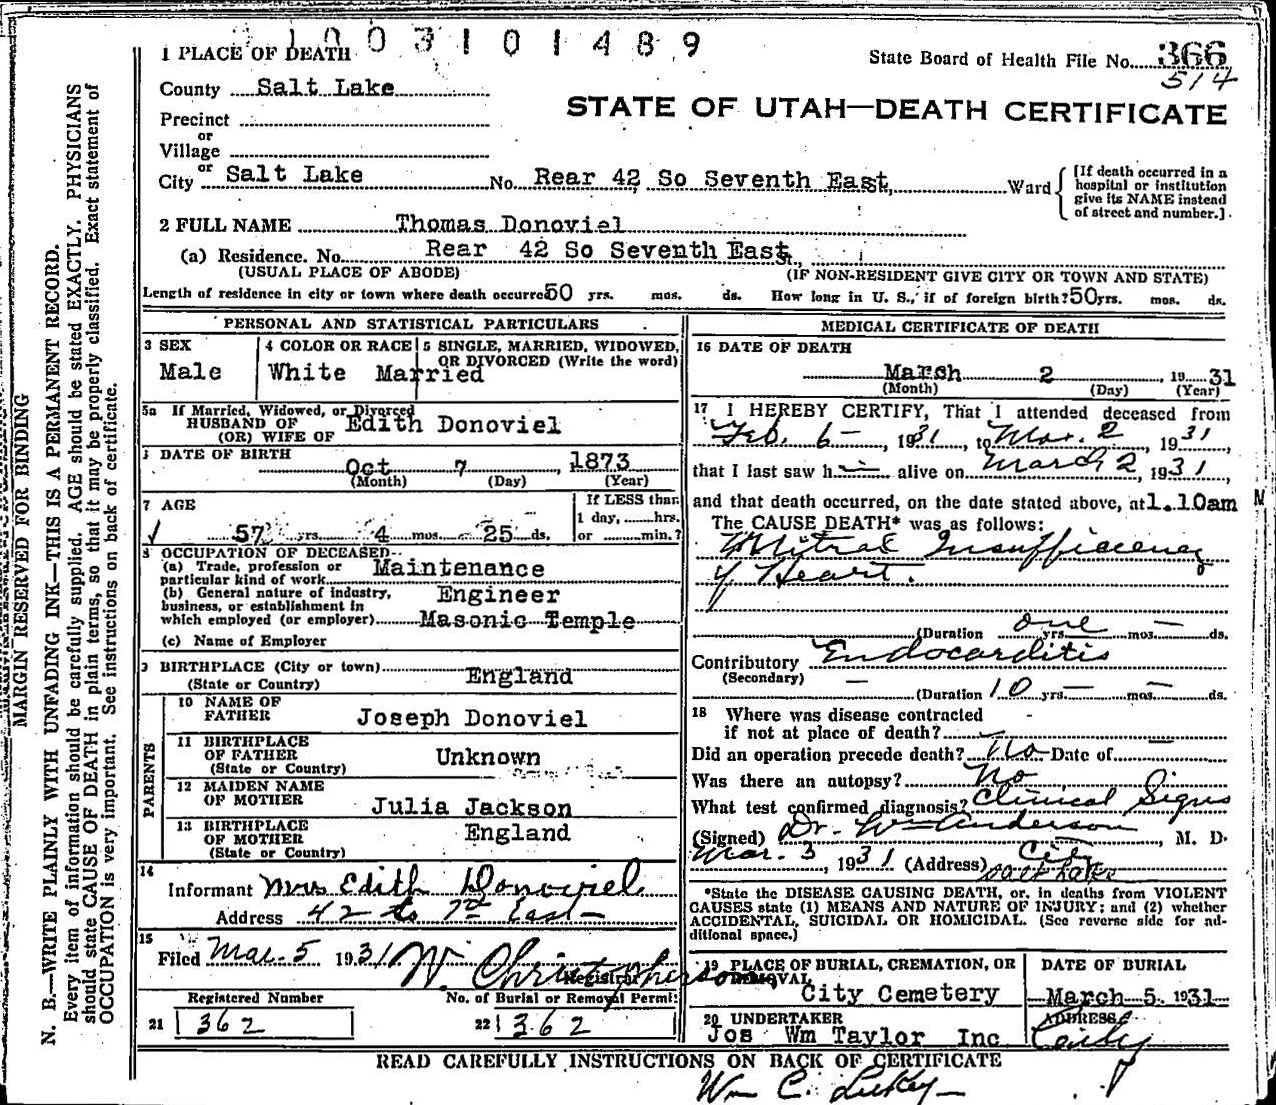 1003101489
1 PLACE OF DEATH
State Board of Health File No. 366
514
County Salt Lake
STATE OF UTAH—DEATH CERTIFICATE
Precinct
or
Village
or
City Salt Lake No. Rear 42 So Seventh East, Ward
[If death occurred in a
hospital or institution
give its NAME instead
of street and number.]
2 FULL NAME Thomas Donoviel
(a) Residence. No. Rear 42 So Seventh East,
(USUAL PLACE OF ABODE) (IF NON-RESIDENT GIVE CITY OR TOWN AND STATE)
Length of residence in city or town where death occurred 50 yrs. mos. ds. How long in U. S., if of foreign birth? 50 yrs. mos. ds.
PERSONAL AND STATISTICAL PARTICULARS
3 SEX
Male
4 COLOR OR RACE
White
5 SINGLE, MARRIED, WIDOWED,
OR DIVORCED (Write the word)
Married
5a If Married, Widowed, or Divorced
HUSBAND OF
(OR) WIFE OF
Edith Donoviel
DATE OF BIRTH
Oct 7, 1873
(Month) (Day) (Year)
7 AGE
57 yrs. 4 mos. 25 ds.
If LESS than
1 day, hrs.
or min.?
8 OCCUPATION OF DECEASED
(a) Trade, profession or
particular kind of work Maintenance
(b) General nature of industry,
business, or establishment in
which employed (or employer)
Engineer
Masonic Temple
(c) Name of Employer
9 BIRTHPLACE (City or town)
(State or Country)
England
PARENTS
10 NAME OF
FATHER
Joseph Donoviel
11 BIRTHPLACE
OF FATHER
(State or Country)
Unknown
12 MAIDEN NAME
OF MOTHER
Julia Jackson
13 BIRTHPLACE
OF MOTHER
(State or Country)
England
14
Informant Mrs Edith Donoviel
Address 42 so 7th East
15
Filed Mar. 5 1931 W. Christopherson
Registrar
Registered Number
21 362
No. of Burial or Removal Permit
22 362
MEDICAL CERTIFICATE OF DEATH
16 DATE OF DEATH
March 2, 1931
(Month) (Day) (Year)
17 I HEREBY CERTIFY, That I attended deceased from
Feb. 6, 1931, to Mar. 2 1931,
that I last saw h im alive on March 2, 1931,
and that death occurred, on the date stated above, at 1.10am M
The CAUSE DEATH* was as follows:
Mitral Insufficiency
of Heart.
(Duration one yrs. mos. ds.
Contributory Endocarditis
(Secondary)
(Duration 10 yrs. mos. ds.
18 Where was disease contracted
if not at place of death?
Did an operation precede death? No Date of
Was there an autopsy? No
What test confirmed diagnosis? Clinical Signs
(Signed) Dr. Wm Anderson, M. D.
Mar. 3, 1931 (Address) City
Salt Lake
*State the DISEASE CAUSING DEATH, or, in deaths from VIOLENT
CAUSES state (1) MEANS AND NATURE OF INJURY; and (2) whether
ACCIDENTAL, SUICIDAL OR HOMICIDAL. (See reverse side for ad-
ditional space.)
19 PLACE OF BURIAL, CREMATION, OR
REMOVAL
City Cemetery
DATE OF BURIAL
March 5, 1931
20 UNDERTAKER
Jos Wm Taylor Inc
ADDRESS
City
READ CAREFULLY INSTRUCTIONS ON BACK OF CERTIFICATE
Wm C.
MARGIN RESERVED FOR BINDING
N. B.—WRITE PLAINLY WITH UNFADING INK—THIS IS A PERMANENT RECORD.
Every item of information should be carefully supplied. AGE should be stated EXACTLY. PHYSICIANS
should state CAUSE OF DEATH in plain terms, so that it may be properly classified. Exact statement of
OCCUPATION is very important. See instructions on back of certificate.